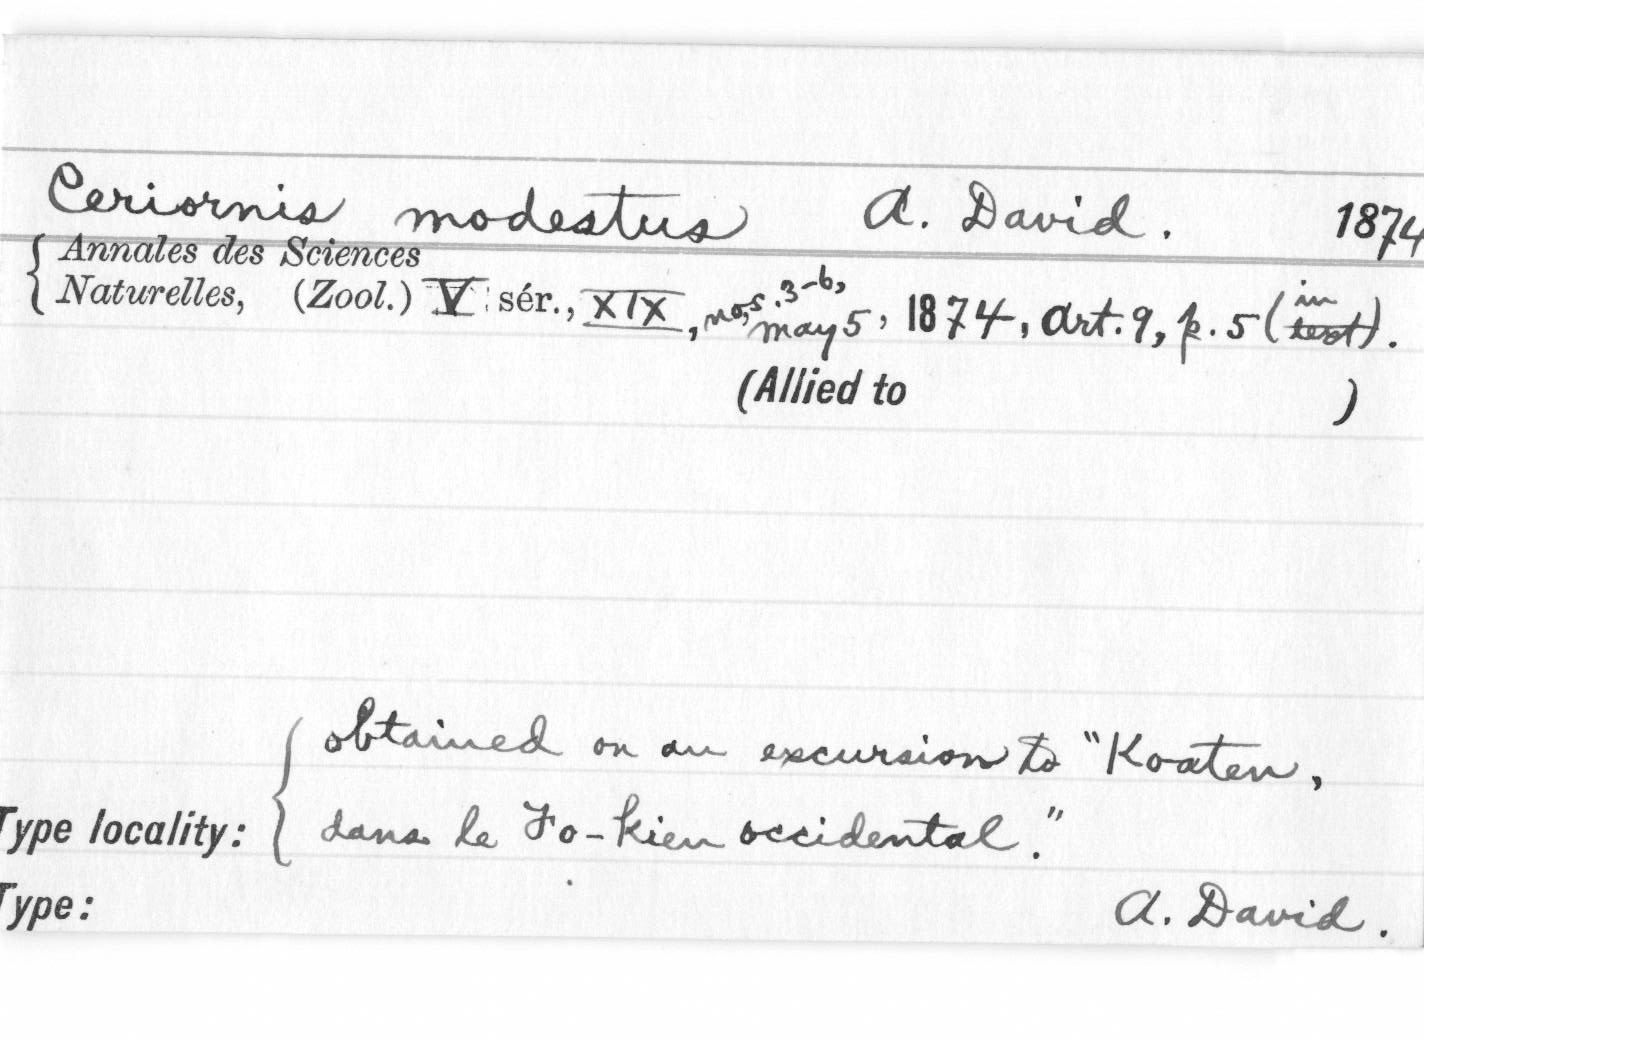 Ceriornis modestus A. David. 1874
{ Annales des Sciences
Naturelles, (Zool.) V sér., XIX, nos. 3-6, May 5, 1874, Art. 9, p. 5 (in text).
(Allied to )
{ obtained on an excursion to "Koaten,
Type locality: dans le Fo-kien occidental."
Type: A. David.